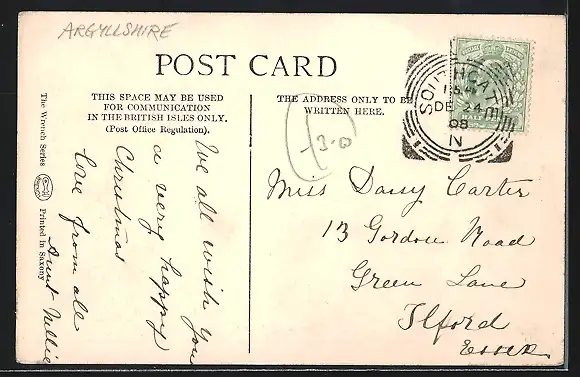 ARGYLLSHIRE
POST CARD
THIS SPACE MAY BE USED
FOR COMMUNICATION
IN THE BRITISH ISLES ONLY.
(Post Office Regulation).
THE ADDRESS ONLY TO BE
WRITTEN HERE.
3.0
SOUTHGATE
DE 24
08
N
HALF PENNY
The Wrench Series
Printed in Saxony
We all wish you
a very happy
Christmas
love from all
Aunt Nellie
Miss Daisy Carter
13 Gordon Road
Green Lane
Ilford
Essex